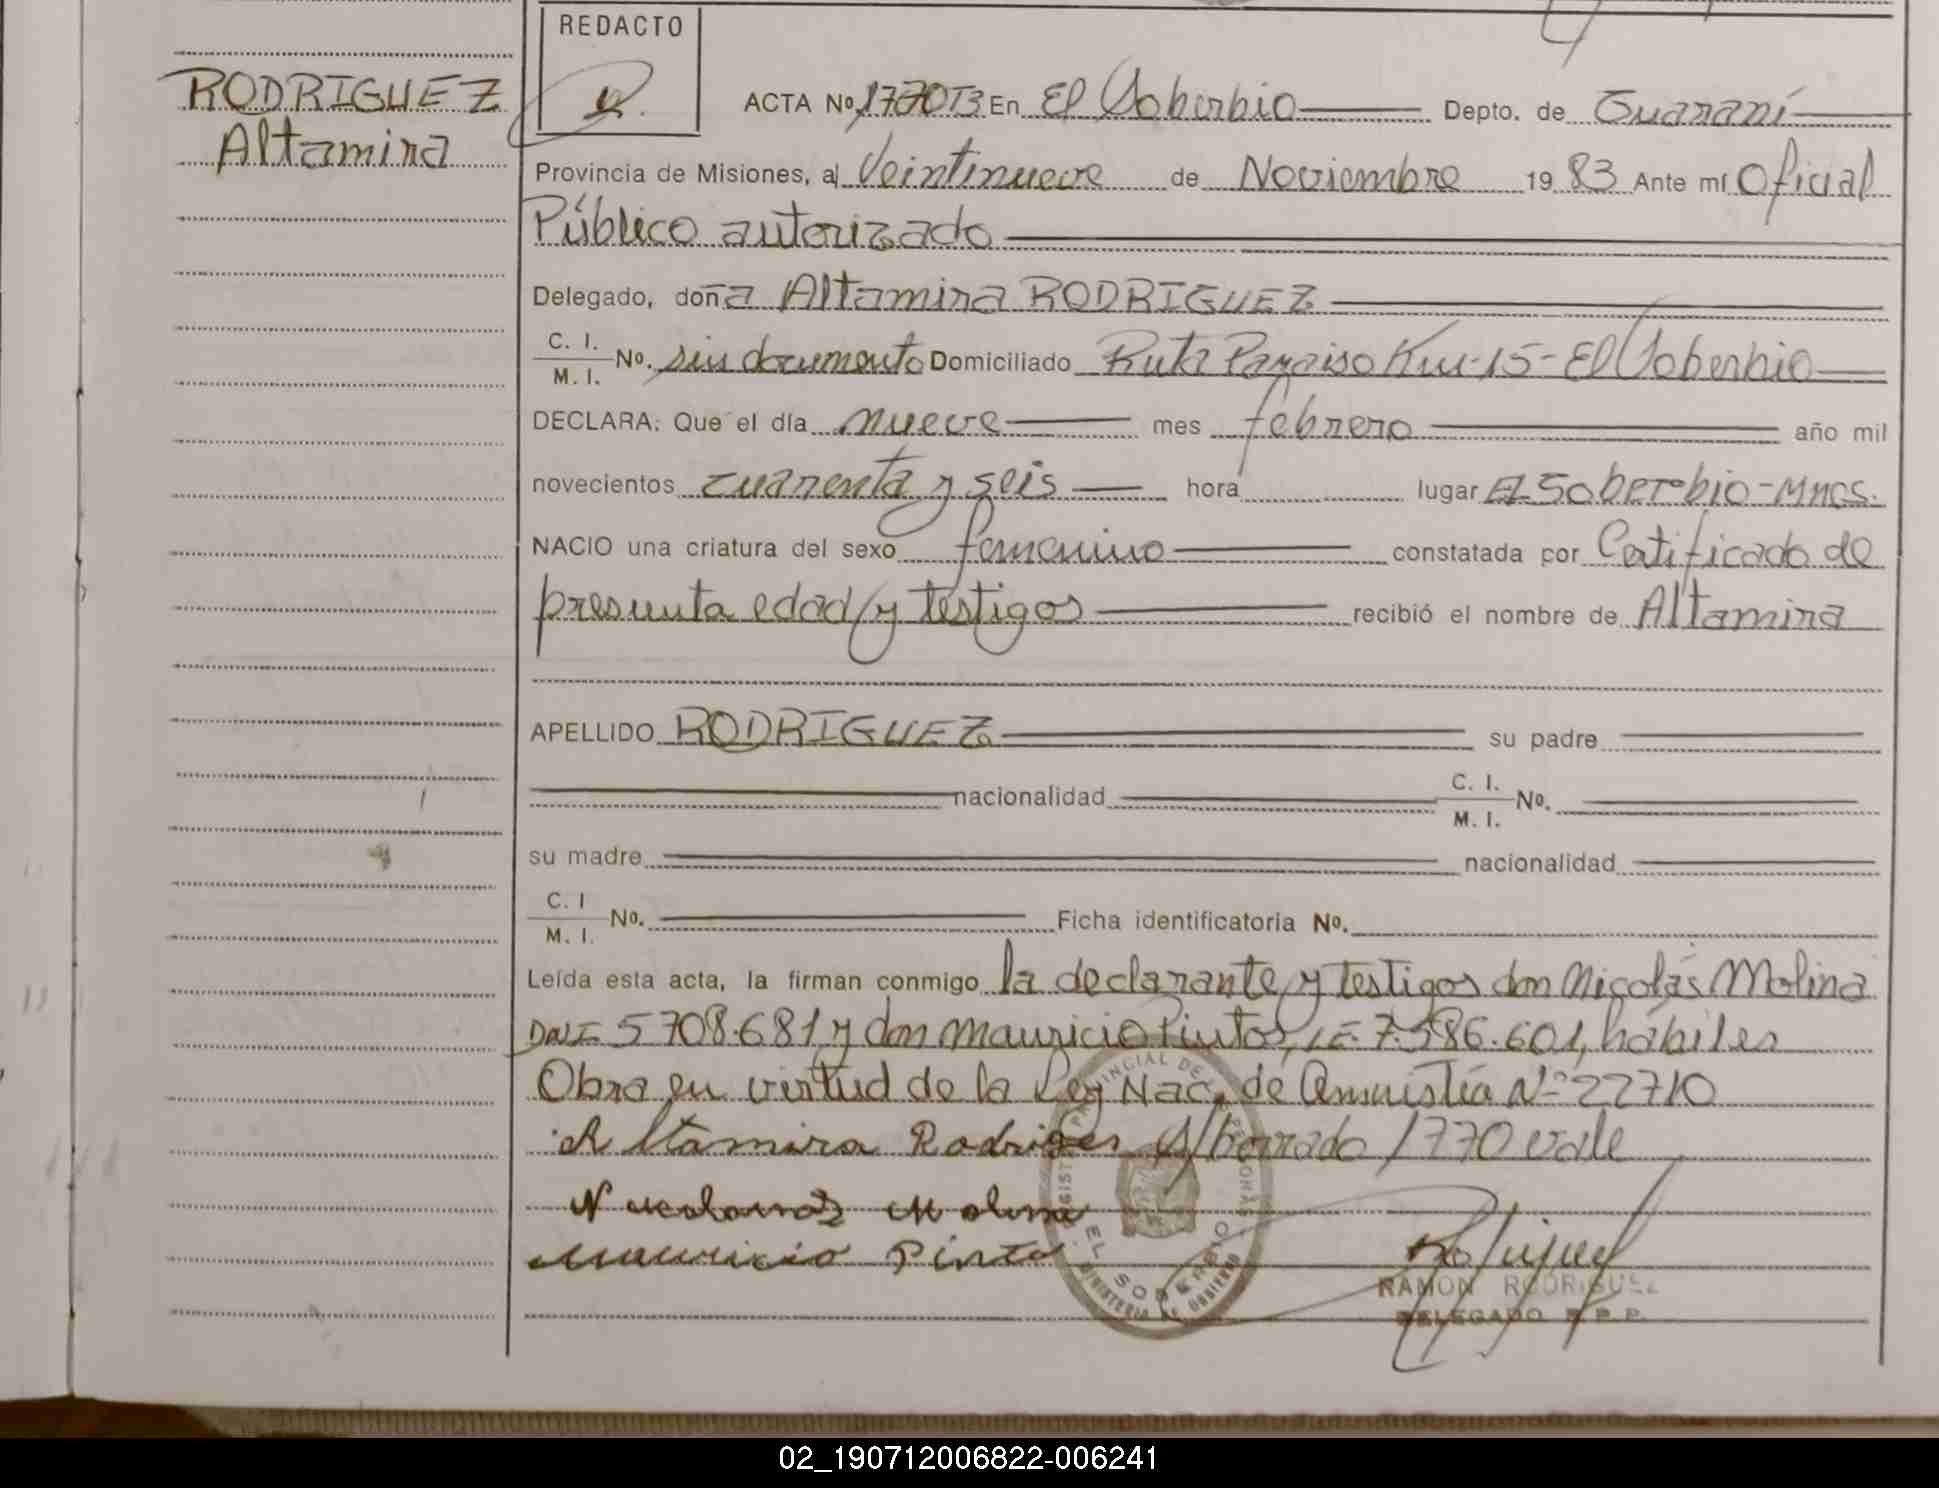 REDACTO
RODRIGUEZ
Altamira
ACTA Nº 1770 T3 En El Soberbio Depto. de Guaraní
Provincia de Misiones, al Veintinueve de Noviembre 19 83 Ante mí Oficial
Público autorizado
Delegado, doña Altamira RODRIGUEZ
C. I.
M. I. Nº. sin documento Domiciliado Ruta Paraiso Km-15-El Soberbio
DECLARA: Que el día nueve mes febrero año mil
novecientos cuarenta y seis hora lugar El Soberbio-Mnes.
NACIO una criatura del sexo femenino constatada por Certificado de
presunta edad y testigos recibió el nombre de Altamira
APELLIDO RODRIGUEZ su padre
nacionalidad C. I.
M. I. Nº.
su madre nacionalidad
C. I
M. I. Nº. Ficha identificatoria Nº.
Leída esta acta, la firman conmigo la declarante y testigos don Nicolás Molina
DNI 5708.681 y don Mauricio Pintos, LE. 7.586.601, hábiles
Obra en virtud de la Ley Nac. de Amnistía Nº 22710
Altamira Rodrigues S/borrado 1770 vale
Mauricio Pinto
EL SOBERBIO
MINISTERIO DE GOBIERNO
RAMON RODRIGUEZ
DELEGADO R.P.P.
02_190712006822-006241